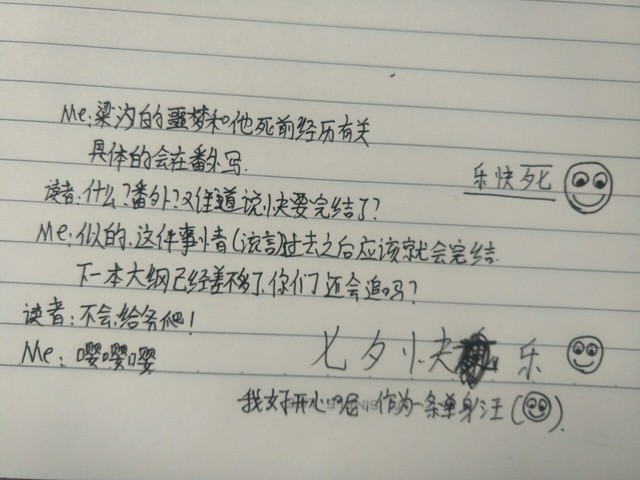 Me:梁汐的噩梦和他死前经历有关
具体的会在番外写.
乐快死
读者:什么?番外?又住道说快要完结了?
Me:似的.这件事情(谎言)过去之后应该就会完结.
下一本大纲已经差不多了.你们还会追吗?
读者:不会.给爷爬!
Me:嘤嘤嘤
七夕快乐
我好开心呢,作为一条单身汪().